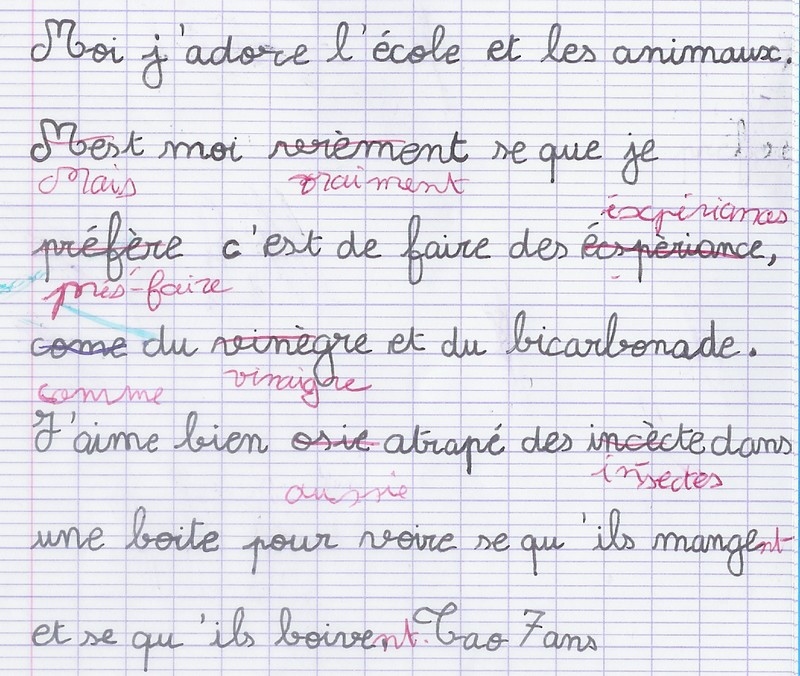 Moi j'adore l'école et les animaux.
Mest moi verèment se que je
Mais vraiment
expériances
préfère c'est de faire des écspèriance,
prés-faire
come du vinègre et du bicarbonade.
comme vinaigre
J'aime bien osie atrapé des incècte dans
aussie insectes
une boite pour voire se qu'ils mangent
et se qu'ils boivent. Tao 7 ans